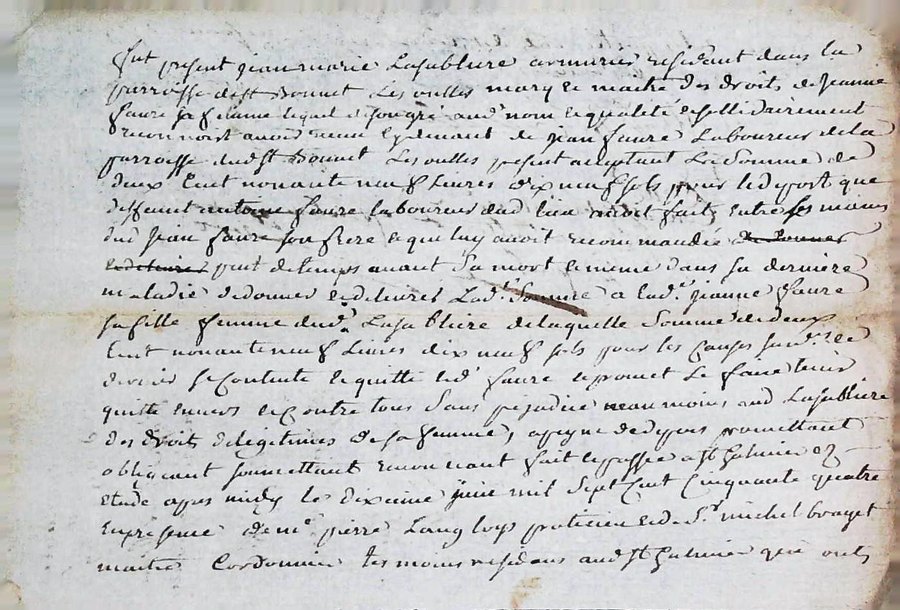 fut present jean marie Lasabliere armurier residant dans la
parroisse de st Bonnet Les oulles mary et maitre des droits de jeanne
faure sa femme lequel de son gré aud nom et qualité et sollidairement
reconnoit avoir receu cy devant de jean faure Laboureur de la
parroisse dud st Bonnet Les oulles present acceptant La Somme de
deux Cent nonante neuf Livres dix neuf sols pour le depost que
deffunt antoine faure laboureur dud lieu avoit fait entre ses mains
dud jean faure son frere et qui luy avoit recommandée de donner
et delivrer peut de temps avant Sa mort et meme dans sa derniere
maladie de donner et delivrer Lad. Somme a lad. jeanne faure
sa fille femme dud. Lasabliere de laquelle Somme de deux
Cent nonante neuf Livres dix neuf sols pour les Causes susd. il
declaire se Contente et quitte led faure et promet Le faire tenir
quitte envers et Contre tous Sans prejudice neanmoins aud Lasabliere
des droits de legitimes de sa femme, a peyne de depens promettant
obligeant soumettant renoncant fait et passé a st Galmier
Etude apres midy le dixaine juin mil Sept Cent Cinquante quatre
En presence de me. pierre Langloys praticien et de Sr. michel brayet
maitre Cordonnier tesmoins residens aud st Galmier qui ont